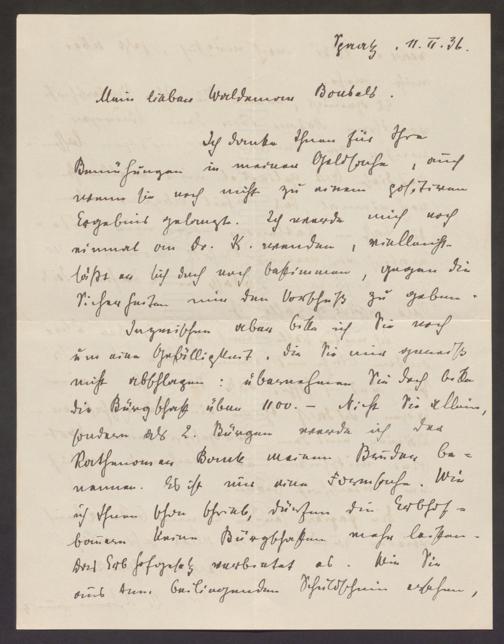 Spaatz, 11. II. 36.
Mein lieber Waldemar Bonsels.
Ich danke Ihnen für Ihre
Bemühungen in meiner Geldsache, auch
wenn sie noch nicht zu einem positiven
Ergebnis gelangt. Ich werde mich noch
einmal an Dr. K. wenden, vielleicht
läßt er sich doch noch bestimmen, gegen die
Sicherheiten mir den Vorschuß zu geben.
Inzwischen aber bitte ich Sie noch
um eine Gefälligkeit, die Sie mir gewiß
nicht abschlagen: übernehmen Sie doch bitte
die Bürgschaft über 1100.- Nicht Sie allein,
sondern als 2. Bürgen werde ich der
Rathenower Bank meinen Bruder be=
nennen. Es ist nur eine Formsache. Wie
ich Ihnen schon schrieb, dürfen die Erbhof=
bauern keine Bürgschaften mehr leisten.
Das Erbhofgesetz verbietet es. Wie Sie
aus dem beiliegenden Schuldschein ersehen,